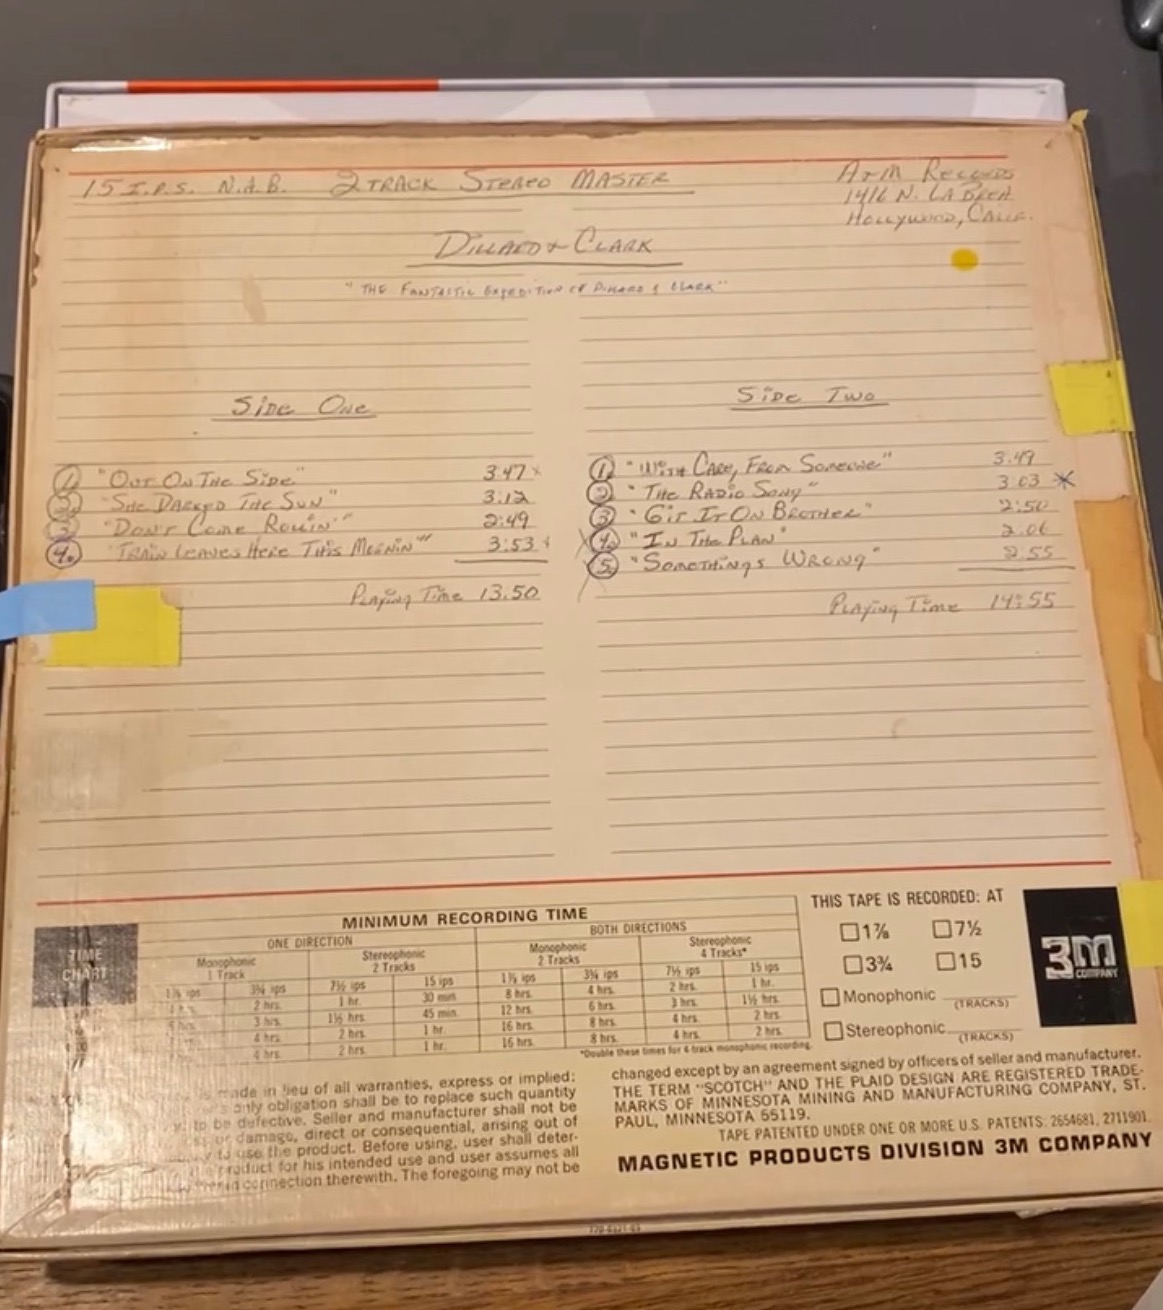 15 I.P.S. N.A.B. 2 TRACK STEREO MASTER
A+M RECORDS
1416 N. LA BREA
HOLLYWOOD, CALIF.
DILLARD + CLARK
"THE FANTASTIC EXPEDITION OF DILLARD & CLARK"
SIDE ONE
① "OUT ON THE SIDE" 3:47 x
② "SHE DARKED THE SUN" 3:12
③ "DON'T COME ROLLIN'" 2:49
④ "TRAIN LEAVES HERE THIS MORNIN'" 3:53
PLAYING TIME 13.50
SIDE TWO
① "WITH CARE, FROM SOMEONE" 3.49
② "THE RADIO SONG" 3:03 *
③ "GIT IT ON BROTHER" 2:50
④ "IN THE PLAN" 2.06
⑤ "SOMETHINGS WRONG" 2.55
PLAYING TIME 14:55
TIME CHART
MINIMUM RECORDING TIME
ONE DIRECTION BOTH DIRECTIONS
Monophonic 1 Track Stereophonic 2 Tracks Monophonic 2 Tracks Stereophonic 4 Tracks*
1⅞ ips 3¾ ips 7½ ips 15 ips 1⅞ ips 3¾ ips 7½ ips 15 ips
2 hrs. 1 hr. 30 min. 8 hrs. 4 hrs. 2 hrs. 1 hr.
3 hrs. 1½ hrs. 45 min. 12 hrs. 6 hrs. 3 hrs. 1½ hrs.
4 hrs. 2 hrs. 1 hr. 16 hrs. 8 hrs. 4 hrs. 2 hrs.
4 hrs. 2 hrs. 1 hr. 16 hrs. 8 hrs. 4 hrs. 2 hrs.
*Double these times for 4-track monophonic recording.
THIS TAPE IS RECORDED: AT
1⅞ 7½
3¾ 15
Monophonic (TRACKS)
Stereophonic (TRACKS)
3M COMPANY
made in lieu of all warranties, express or implied:
only obligation shall be to replace such quantity
to be defective. Seller and manufacturer shall not be
or damage, direct or consequential, arising out of
to use the product. Before using, user shall deter-
product for his intended use and user assumes all
in connection therewith. The foregoing may not be
changed except by an agreement signed by officers of seller and manufacturer.
THE TERM "SCOTCH" AND THE PLAID DESIGN ARE REGISTERED TRADE-
MARKS OF MINNESOTA MINING AND MANUFACTURING COMPANY, ST.
PAUL, MINNESOTA 55119.
TAPE PATENTED UNDER ONE OR MORE U.S. PATENTS: 2654681, 2711901.
MAGNETIC PRODUCTS DIVISION 3M COMPANY